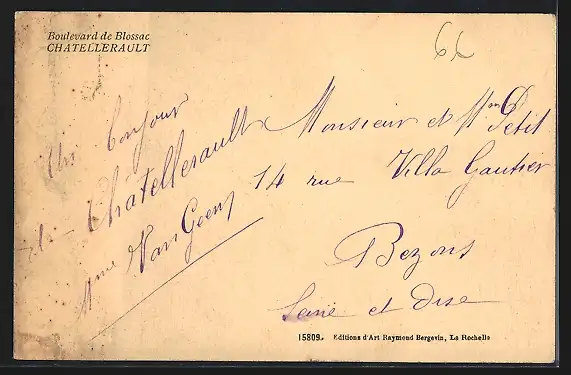 Boulevard de Blossac
CHATELLERAULT
66
Un bonjour
de Chatellerault
Mme Van Geens
Monsieur et Mme Petit
14 rue Villa Gautier
Bezons
Seine et Oise
15809. Editions d'Art Raymond Bergevin, La Rochelle